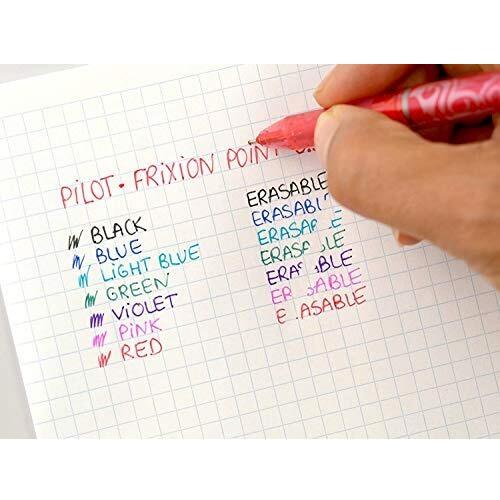 PiLOT · FRIXION POINT
BLACK ERASABLE
BLUE ERASABL
LiGHT BLUE ERASABLE
GREEN ERASABLE
ViOLET ERASABLE
PiNK ERASABLE
RED ERASABLE